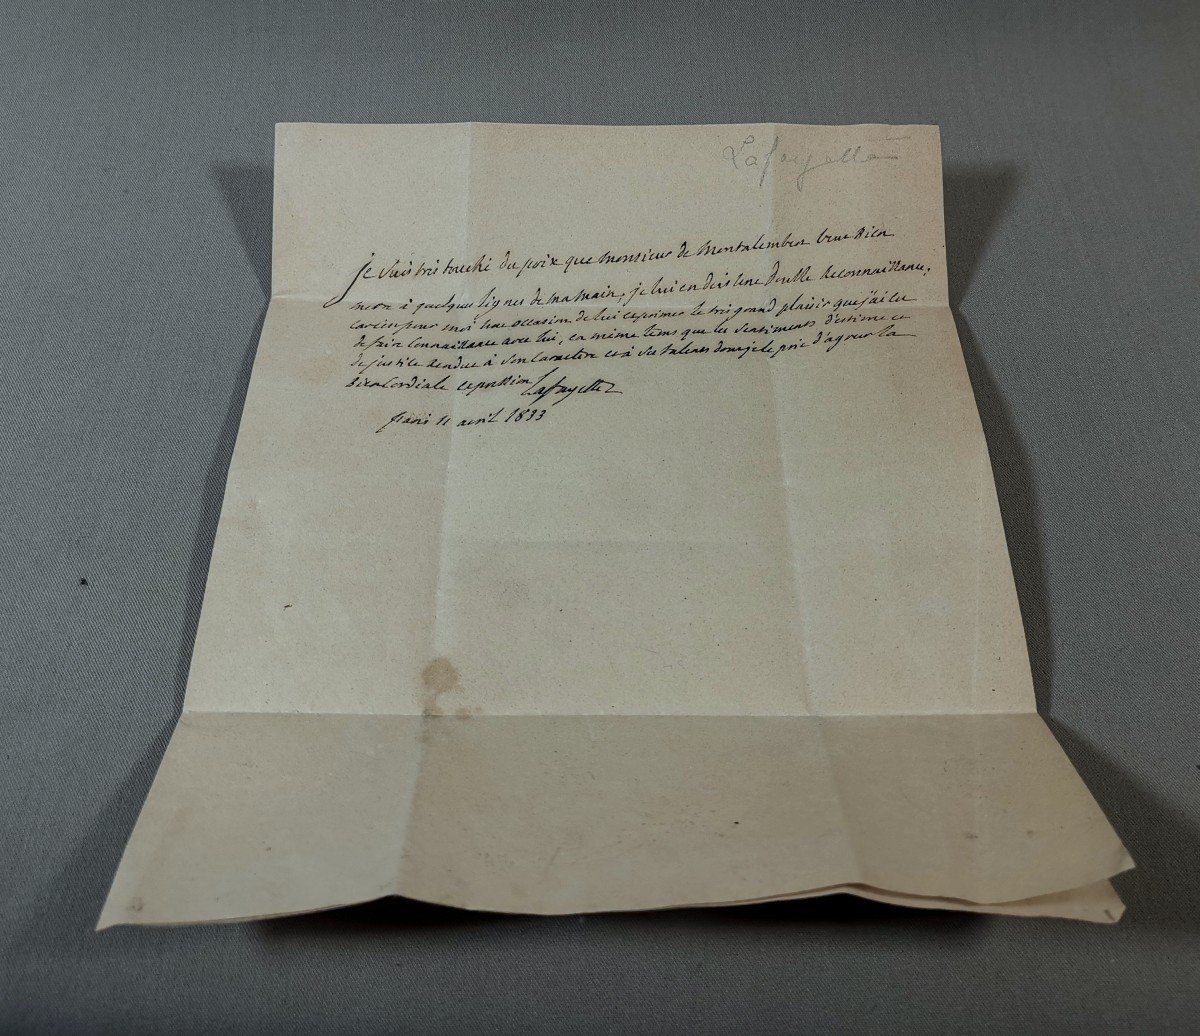 Lafayette
je suis très touché du prix que Monsieur de Montalembert veut bien
mettre à quelques lignes de ma main, je lui en dois une double reconnaissance,
car c'est pour moi une occasion de lui exprimer le très grand plaisir que j'ai eu
de faire connaissance avec lui, en même tems que les sentiments d'estime et
de justice rendue à son caractère et à ses talents dont je le prie d'agréer la
bien cordiale expression Lafayette
Paris 11 avril 1833